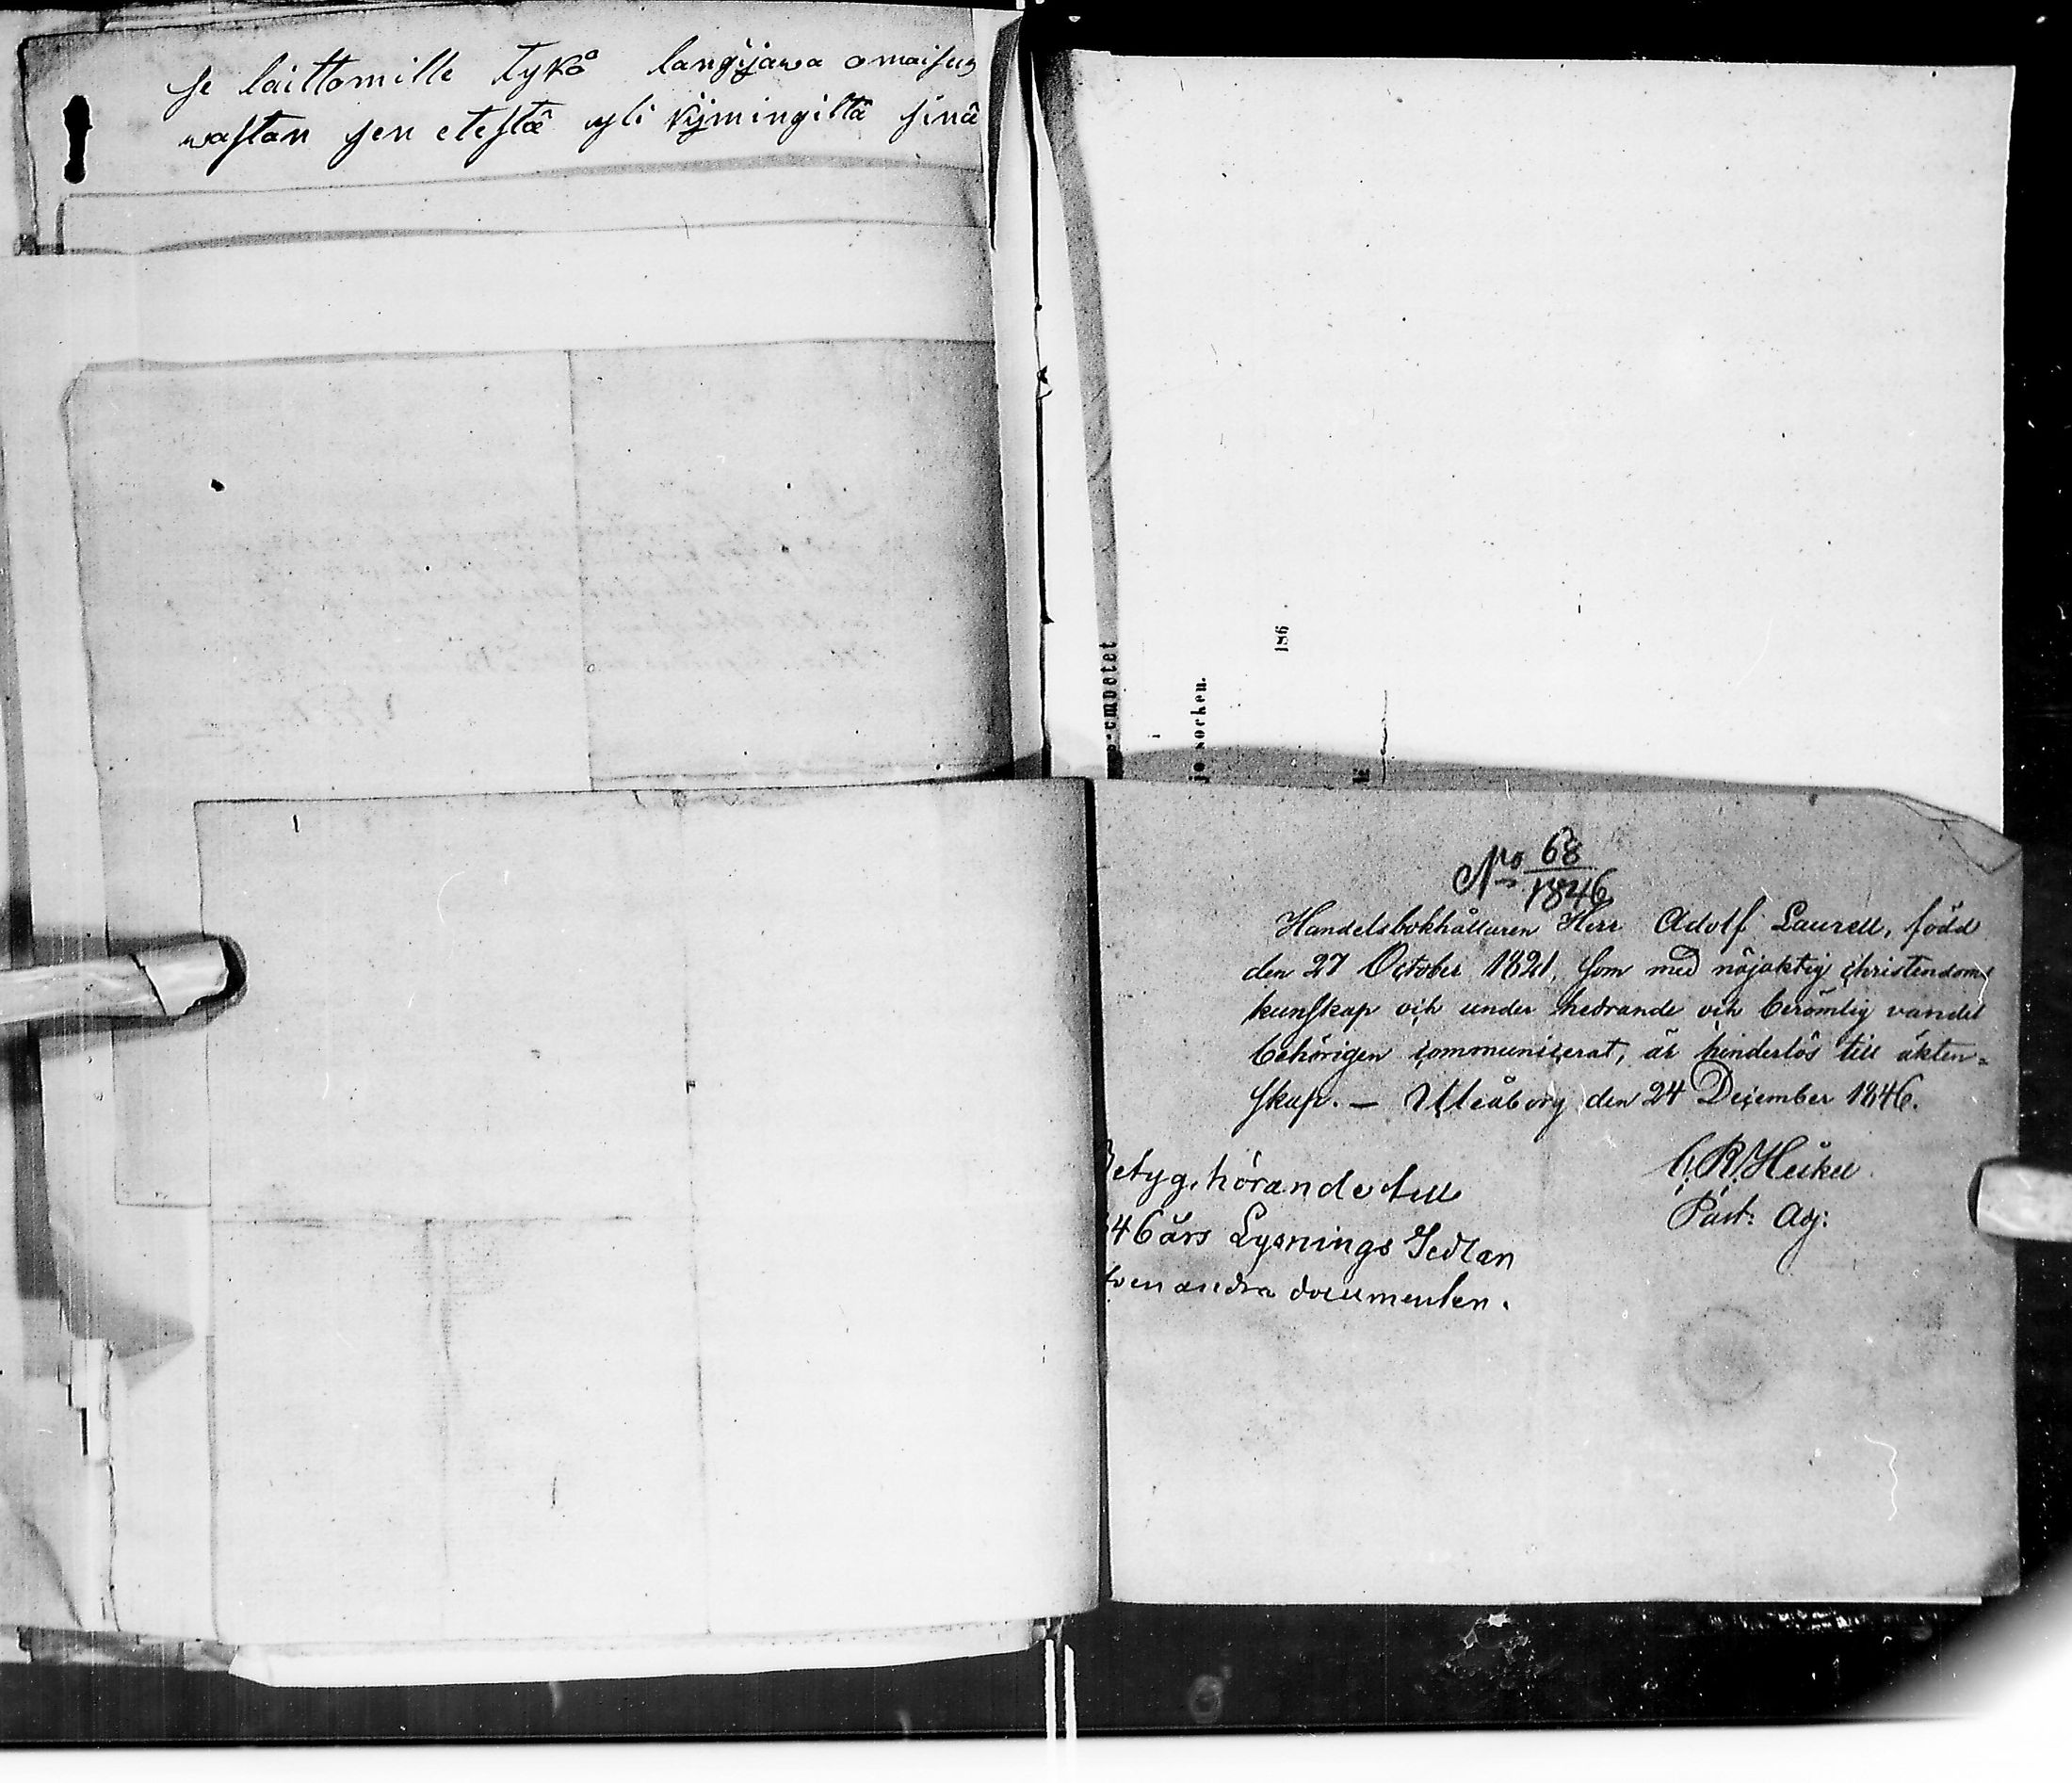 se laittomille tykö langijawa omaisuus
wastan sen etestä yli kijmingiltä sinä
embetet
jo socken.
186 .
No 68
1846
Handelsbokhållaren Herr Adolf Laurell, född
den 27 October 1821, som med nöjaktig christendoms
kunskap och under hedrande och berömlig vandel
behörigen communicerat, är hinderlös till äkten=
skap. — Uleåborg den 24 December 1846.
C. R. Heikel
Past: Adj:
Betyg, hörande till
46 års Lysnings Sedlar
även andra documenter.